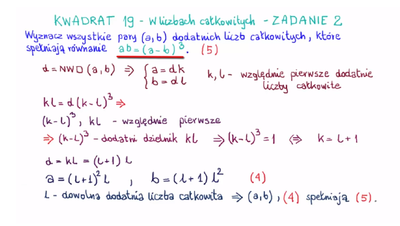 KWADRAT 19 - W liczbach całkowitych - ZADANIE 2
Wyznacz wszystkie pary (a,b) dodatnich liczb całkowitych, które
spełniają równanie ab=(a-b)³. (5)
d = NWD(a,b) ⇒ { a = dk b = dl k, l - względnie pierwsze dodatnie liczby całkowite
kl = d(k-l)³ ⇒
(k-l)³, kl - względnie pierwsze
⇒ (k-l)³ - dodatni dzielnik kl ⇒ (k-l)³ = 1 ⇔ k = l+1
d = kl = (l+1) l
a = (l+1)² l , b = (l+1) l² (4)
l - dowolna dodatnia liczba całkowita ⇒ (a,b), (4) spełniają (5).